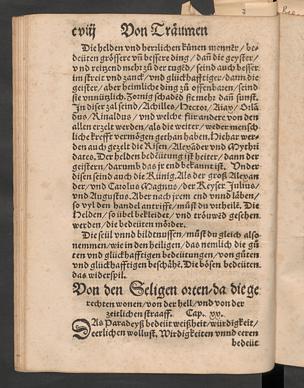 cviij Von Träumen
Die helden vnd herrlichen künen menner / be-
deüten grössere vñ bessere ding / dañ die geyster /
vnd reitzend mehr zů der tugēd / seind auch besser
im streit vnd zanck / vnd glückhafftiger / dann die
geister / aber heimliche ding zů offenbaren / seind
sie vnnützlich. Zornig schadēd sie mehr dañ sunst.
In diser zal seind / Achilles / Hector / Aiax / Orlā
dus / Rinaldus / vnd welche für andere von den
allen erzelt werden / als die weiter / weder mensch-
liche krefft vermögen gethan haben. Hiehar wer-
den auch gezelt die Risen / Alexāder vnd Mythri
dates. Der helden bedeütung ist heiter / dann der
geistern / darumb das sie end bekant ist. Vnd er-
dessen seind auch die Künig. Als der groß Alexan
der / vnd Carolus Magnus / der Keyser Julius /
vnd Augustus. Aber nach jrem end vnnd läben /
so vyl den handel antrifft / můst du vrtheile. Die
Helden / so übel bekleidet / vnd tröuwēd gesehen
werden / die bedeüten mörder.
Die seül vnnd bildtnussen / můst du gleich alsо
nemmen / wie in den heiligen / das nemlich die gů
ten vnd glückhafftigen bedeütungen / von gůten
vnd glückhafftigen beschåhē. Die bösen bedeüten
das widerspil.
Von den Seligen orten / da die ge
rechten wonen / von der hell / vnd von der
zeitlichen straaff. Cap. xv.
Das Paradeyß bedeüt weißheit / würdigkeit /
eerlichen wollust. Wirdigkeiten vnnd eeren
bedeüt